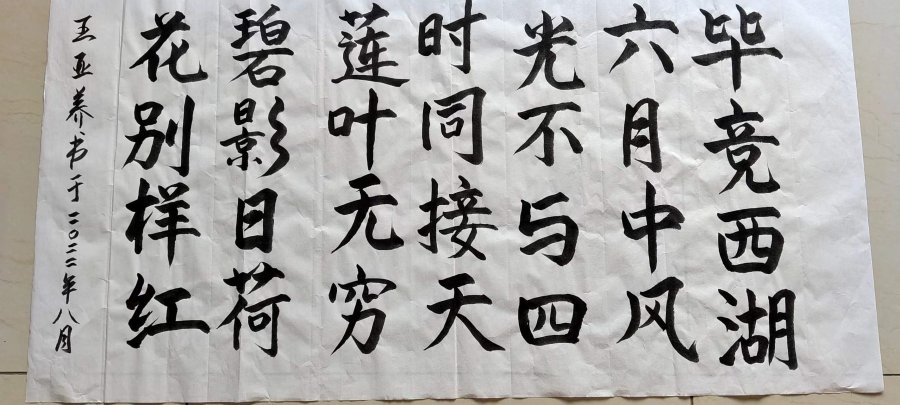 毕竟西湖
六月中风
光不与四
时同接天
莲叶无穷
碧影日荷
花别样红
王亚养书于二〇二二年八月